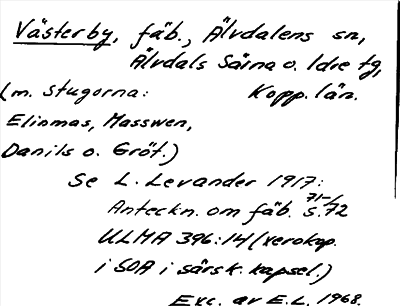 Västerby, fäb., Älvdalens sn,
Älvdals Särna o. Idre tg,
(m. stugorna: Kopp. län.
Elinmas, Masswen,
Danils o. Gröt.)
Se L. Levander 1917:
Anteckn. om fäb. s. 71-72
ULMA 396:14 (xerokop.
i SOA i särsk. kapsel.)
Exc. av E.L. 1968.